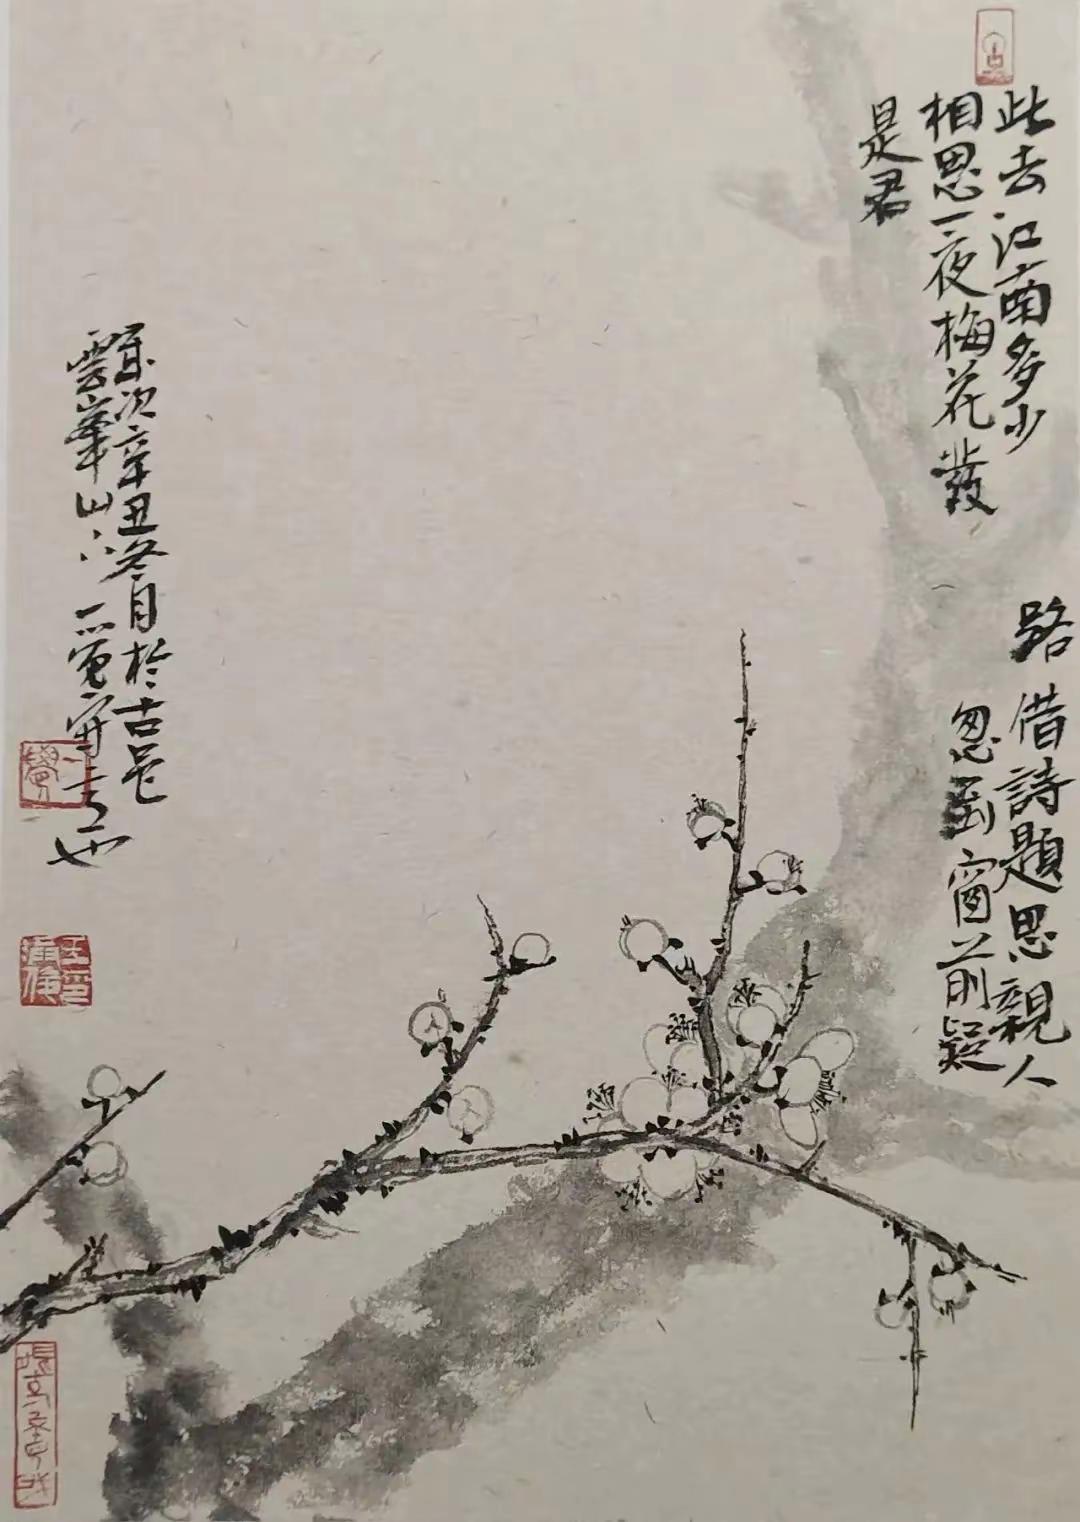 此去江南多少路借詩題思親人
相思一夜梅花發忽到窗前疑
是君
歲次辛丑冬月於古邑
雲峯山